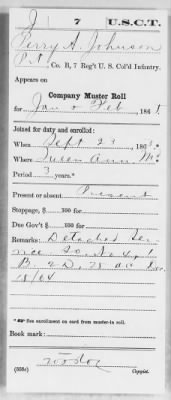 J 7 U.S.C.T.
Perry A. Johnson
Pvt, Co. B, 7 Reg't U. S. Col'd Infantry.
Appears on
Company Muster Roll
for Jan & Feb, 1865.
Joined for duty and enrolled:
When Sept 23, 1863.
Where Queen Ann Md
Period 3 years.*
Present or absent Present
Stoppage, $ 100 for
Due Gov't $ 100 for
Remarks: Detached Ser-
vice
B. 4 D. 25 a.c. Dec.
18/64
*See enrollment on card from muster-in roll.
Book mark:
(358c) Copyist.